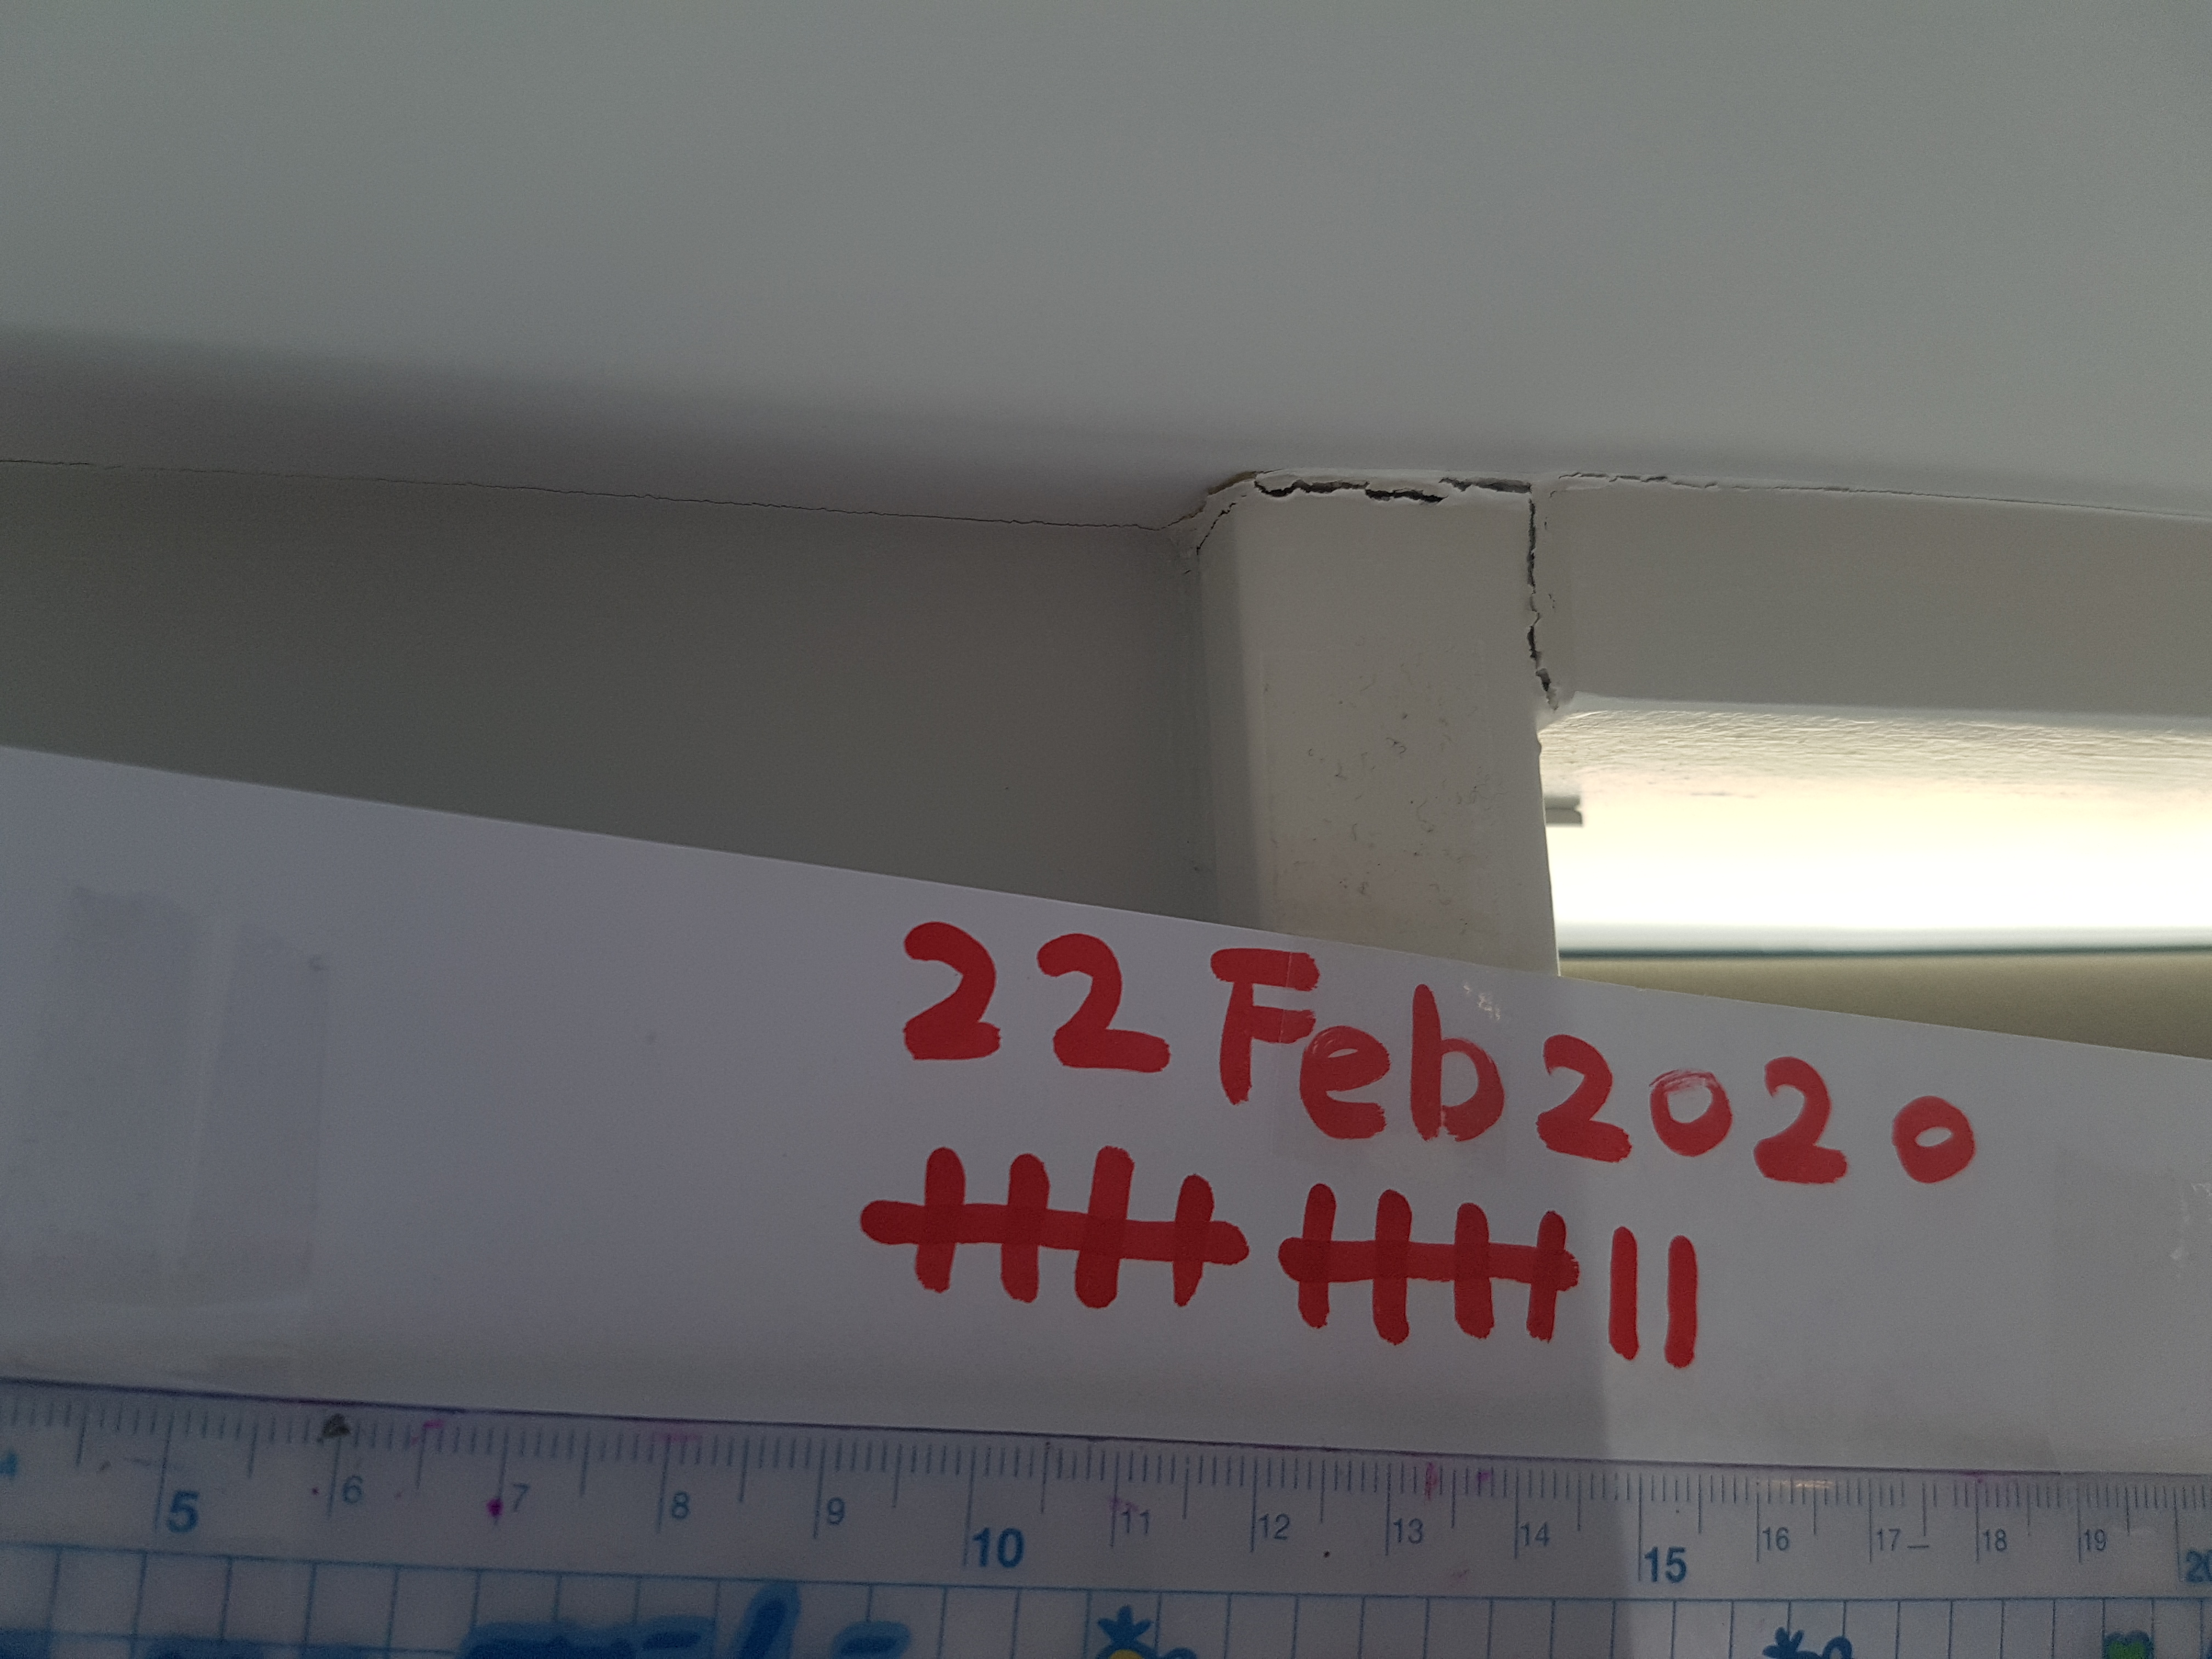 22 Feb 2020
5 6 7 8 9 10 11 12 13 14 15 16 17 18 19 20